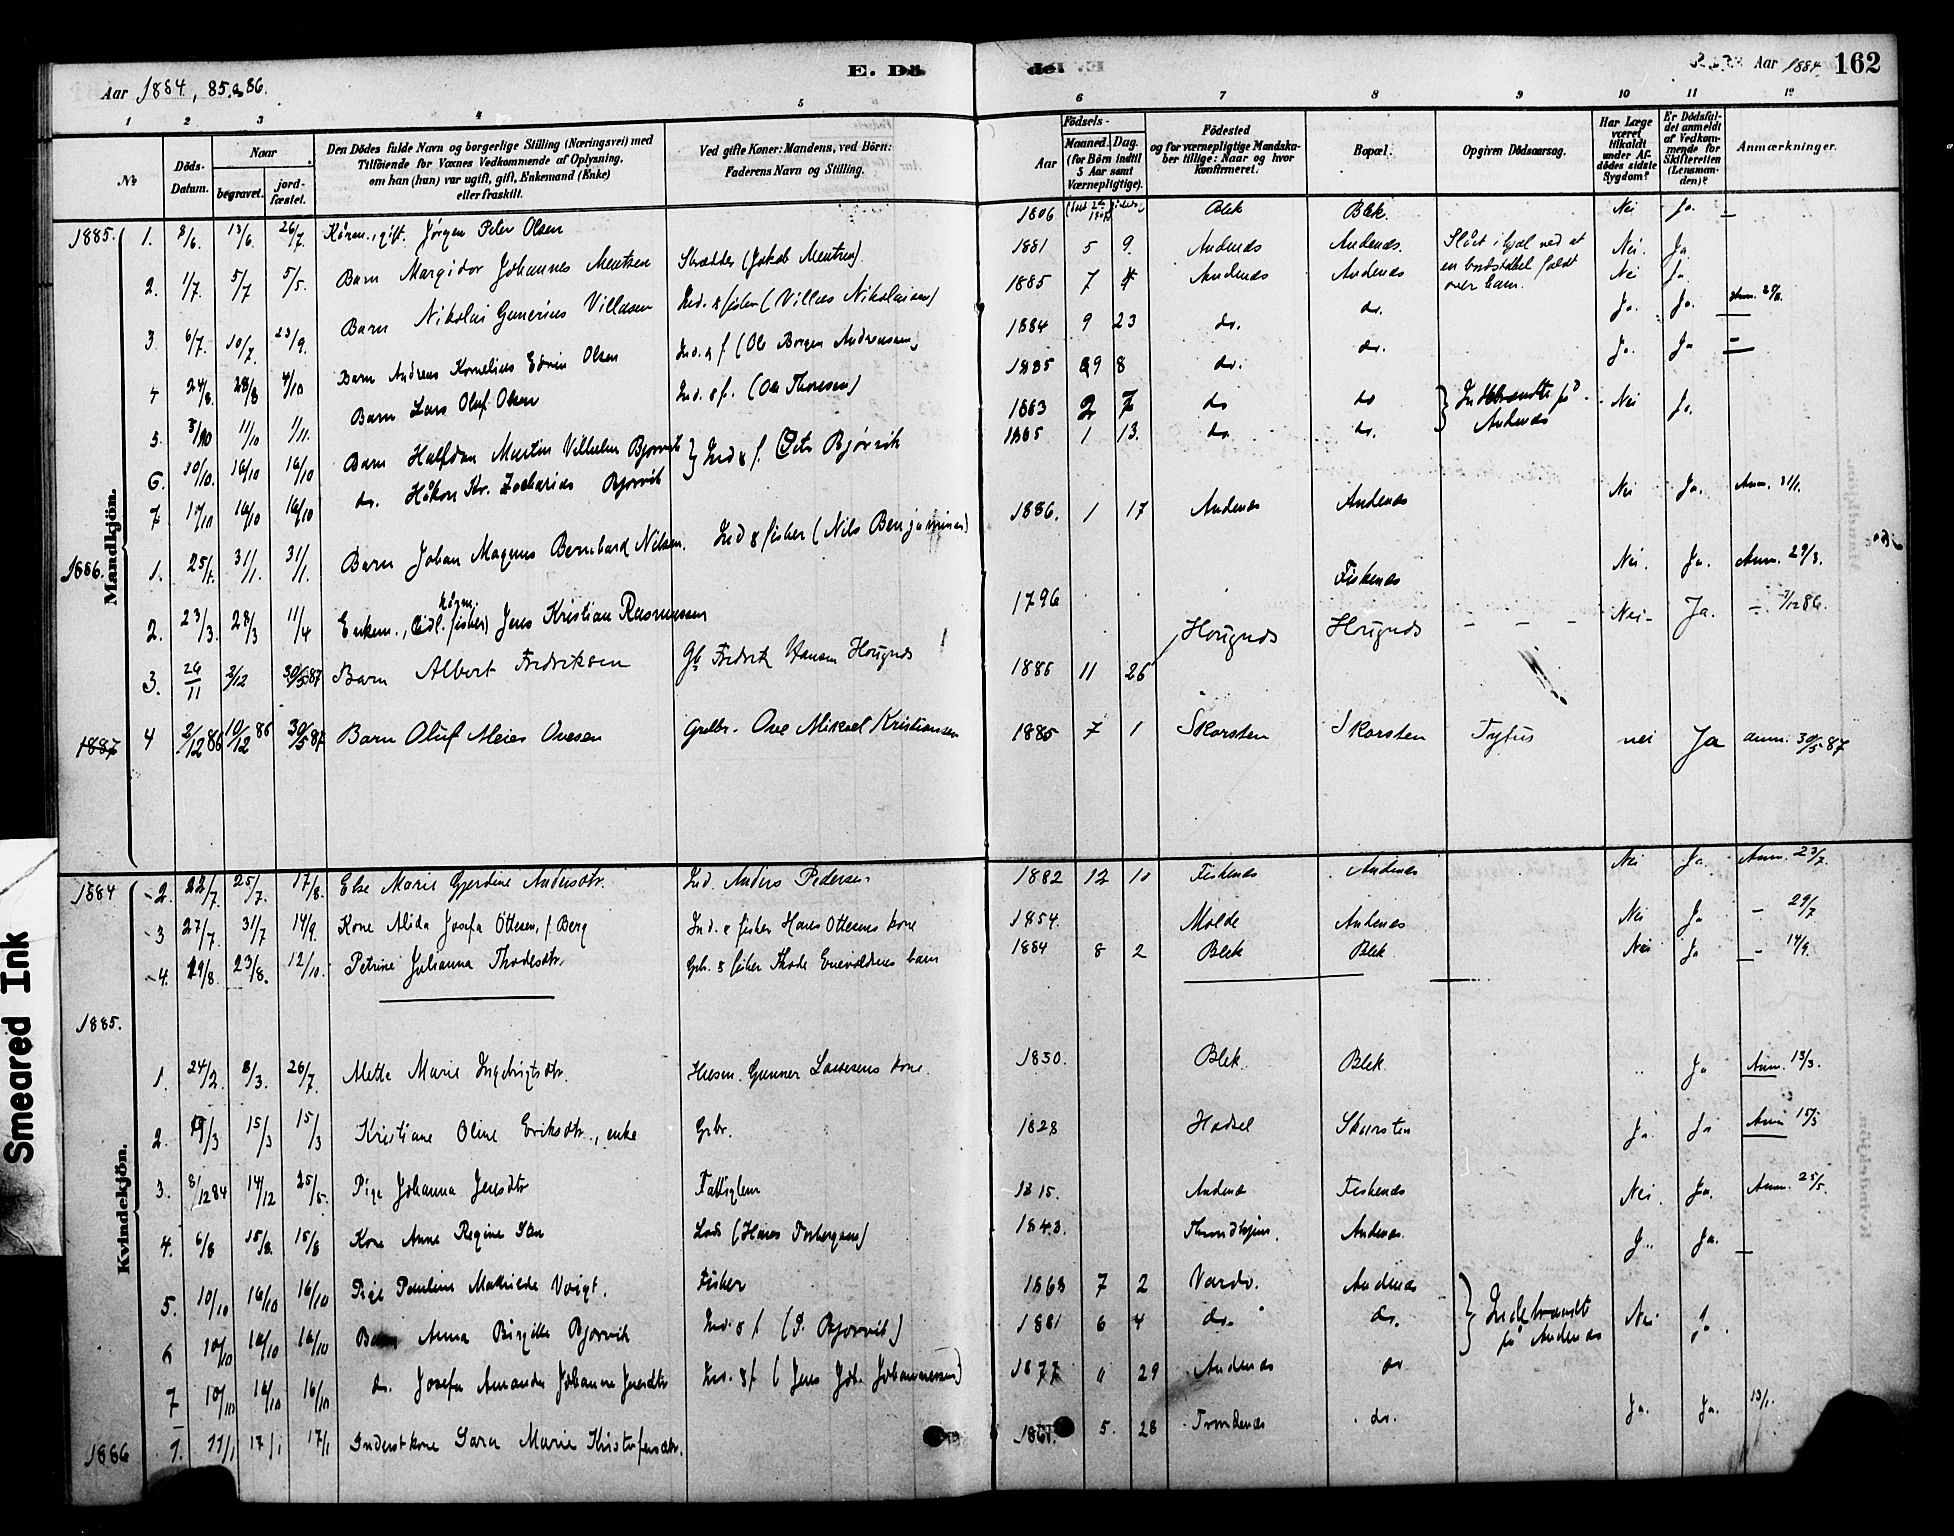 Aar 1884, 85 & 86.
E. Dö
de
Aar 1884
162
1 2 3 4 5 6 7 8 9 10 11 12
No
Döds-Datum.
Naar
begravet.
jord-fæstet.
Den Dödes fulde Navn og borgerlige Stilling (Næringsvei) med
Tilföiende for Voxnes Vedkommende af Oplysning,
om han (hun) var ugift, gift, Enkemand (Enke)
eller fraskilt.
Ved gifte Koner: Mandens, ved Börn:
Faderens Navn og Stilling.
Födsels-
Aar
Maaned. Dag.
(for Börn indtil
5 Aar samt
Værnepligtige).
Födested
og for værnepligtige Mandska-
ber tillige: Naar og hvor
konfirmeret.
Bopæl.
Opgiven Dödsaarsag.
Har Læge
været
tilkaldt
under Af-
dödes sidste
Sygdom?
Er Dödsfal-
det anmeldt
af Vedkom-
mende for
Skifteretten
(Lensman-
den)?
Anmærkninger.
Mandkjön.
1885. 1. 8/6. 13/6. 26/7. gift. Jörgen Peter Olsen 1806 Blek Blek. Nei Ja.
2. 1/7. 5/7 5/5. Barn Margidor Johannes Mentzen Skrædder (Jakob Mentzen). 1881 5 9 Andenæs Andenæs. Slået ihjel ved at en bordstabel faldt over ham. Nei. Ja.
3. 6/7. 10/7. 23/9. Barn Nikolai Gunerius Villasen Ind. & fisker (Villas Nikolaisen) 1885 7 Andenæs Andenæs Nei Ja
4 24/8. 28/8 4/10 Barn Andreas Kornelius Edvin Olsen Ind. & f. (Ole Borgen Andreassen) 1884 9 23 do. do. Ja. Ja. Anm.
5. 11/10 1/11. Barn Lars Oluf Olsen Ind. & f. (Ole Thoresen) 1885 9 8 do. do. Ja. Ja
6. 10/10. 16/10 16/10 Barn Halfdan Martin Vilhelm Bjørvik } Ind & f. Peter Bjørvik 1883 2 7 do do } Indebrændte på Andenæs Nei Ja.
7 10/10 16/10 16/10 do. Håkon Kr. Zacharias Bjorvik 1885 1 13. do. do.
1886. 1. 25/1. 31/1. 31/1. Barn Johan Magnus Bernhard Nilsen. Ind & fisker (Nils Benjaminsen) 1886. 1 17 Andenæs Andenæs Nei Ja. Anm. 31/1.
2. 23/3. 28/3 11/4 Enkem., (tidl. fisker) Jens Kristian Rasmussen 1796 Fiskenæs Nei. Ja. Anm. 29/3.
3. 26/11 2/12 30/5 87 Barn Albert Fredriksen Gb Fredrik Hansen Hougnæs 1886 11 26 Hougnæs Hougnæs Nei Ja. 7/12 86.
1887 4 2/12 86 10/12 86 30/5 87 Barn Oluf Meier Ovesen Grdbr. Ove Mikael Kristiansen 1885 7 1 Skarsten Skarsten Tyfus nei Ja anm. 30/5 87
Kvindekjön.
1884 2. 22/7. 25/7. 17/8. Else Marie Gjerdine Andersdtr. Ind. Anders Pedersen 1882 12 10 Fiskenæs Andenæs Nei Ja. Anm. 23/7.
3 27/7. 31/7 14/9. Kone Alida Josefa Ottesen, f Berg Ind. & fisker Hans Ottesens kone 1854. Molde Andenæs Nei Ja 29/7
4. 19/8. 23/8. 12/10. Petrine Julianna Thodesdtr. Gb. & fisker Thode Enevoldsens barn 1884 8 2 Blek Blek. Nei Ja 14/9.
1885.
1. 24/2. 8/3. 26/7. Mette Marie Ingebrigtsdtr. Husm. Gunner Larsens kone. 1830. Blek. Blek. Ja Anm. 13/3.
2. 9/3 15/3 15/3 Kristiane Oline Eriksdtr., enke Grbr. 1828 Hadsel Skarsten Ja. Ja Anm 15/3
3. 8/12 84 14/12 25/5. Pige Johanna Jensdtr Fattiglem 1815. Andenæs Fiskenæs Nei. Ja. Anm. 25/5.
4. 6/8 15/8. 15/8 Kone Anne Regine Lods (Hans Torbergsen) 1843. Throndhjem. Andenæs. Ja.
5. 10/10 16/10 16/10 Pige Pauline Mathilde Voigt. Fisker 1868 7 2 Vardo. Andenæs } Indebrændt på Andenæs Nei Ja
6 10/10 16/10 16/10 Barn Anna Birgitte Bjorvik Ind. & f (P. Bjorvik) 1881 6 4 do. do.
7 10/10 16/10 16/10 do. Josefa Amanda Johanna Jensdtr Ind. & f (Jens Joh. Johannessen) 1877 29 Andenæs do
1886 1. 11/1 17/1 17/1 Inderstkone Sara Marie Kristofersdtr. 1861. 5. 28 Trondenæs do. Ja. Ja. 13/1.
Smeared Ink